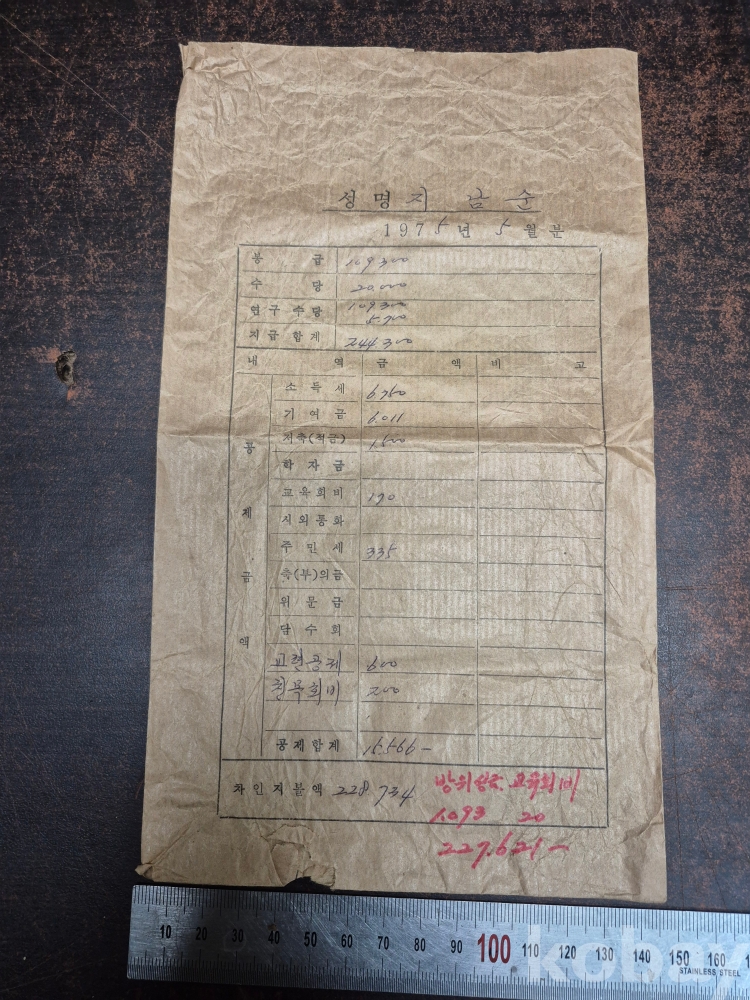 성명 지 남 순
1975년 5월분
봉급 109300
수당 20,000
연구수당 109300
5700
지급합계 244300
내역 금액 비고
공제금액
소득세 6,760
기여금 6,011
저축(적금) 1,500
학자금
교육회비 190
시외통화
주민세 335
축(부)의금
위문금
담수회
교련공제 600
친목회비 200
공제합계 15,566-
차인지불액 228,734
방위성금. 교육회비
1,093 20
227,621-
10 20 30 40 50 60 70 80 90 100 110 120 130 140 150 160
STAINLESS STEEL
kobay